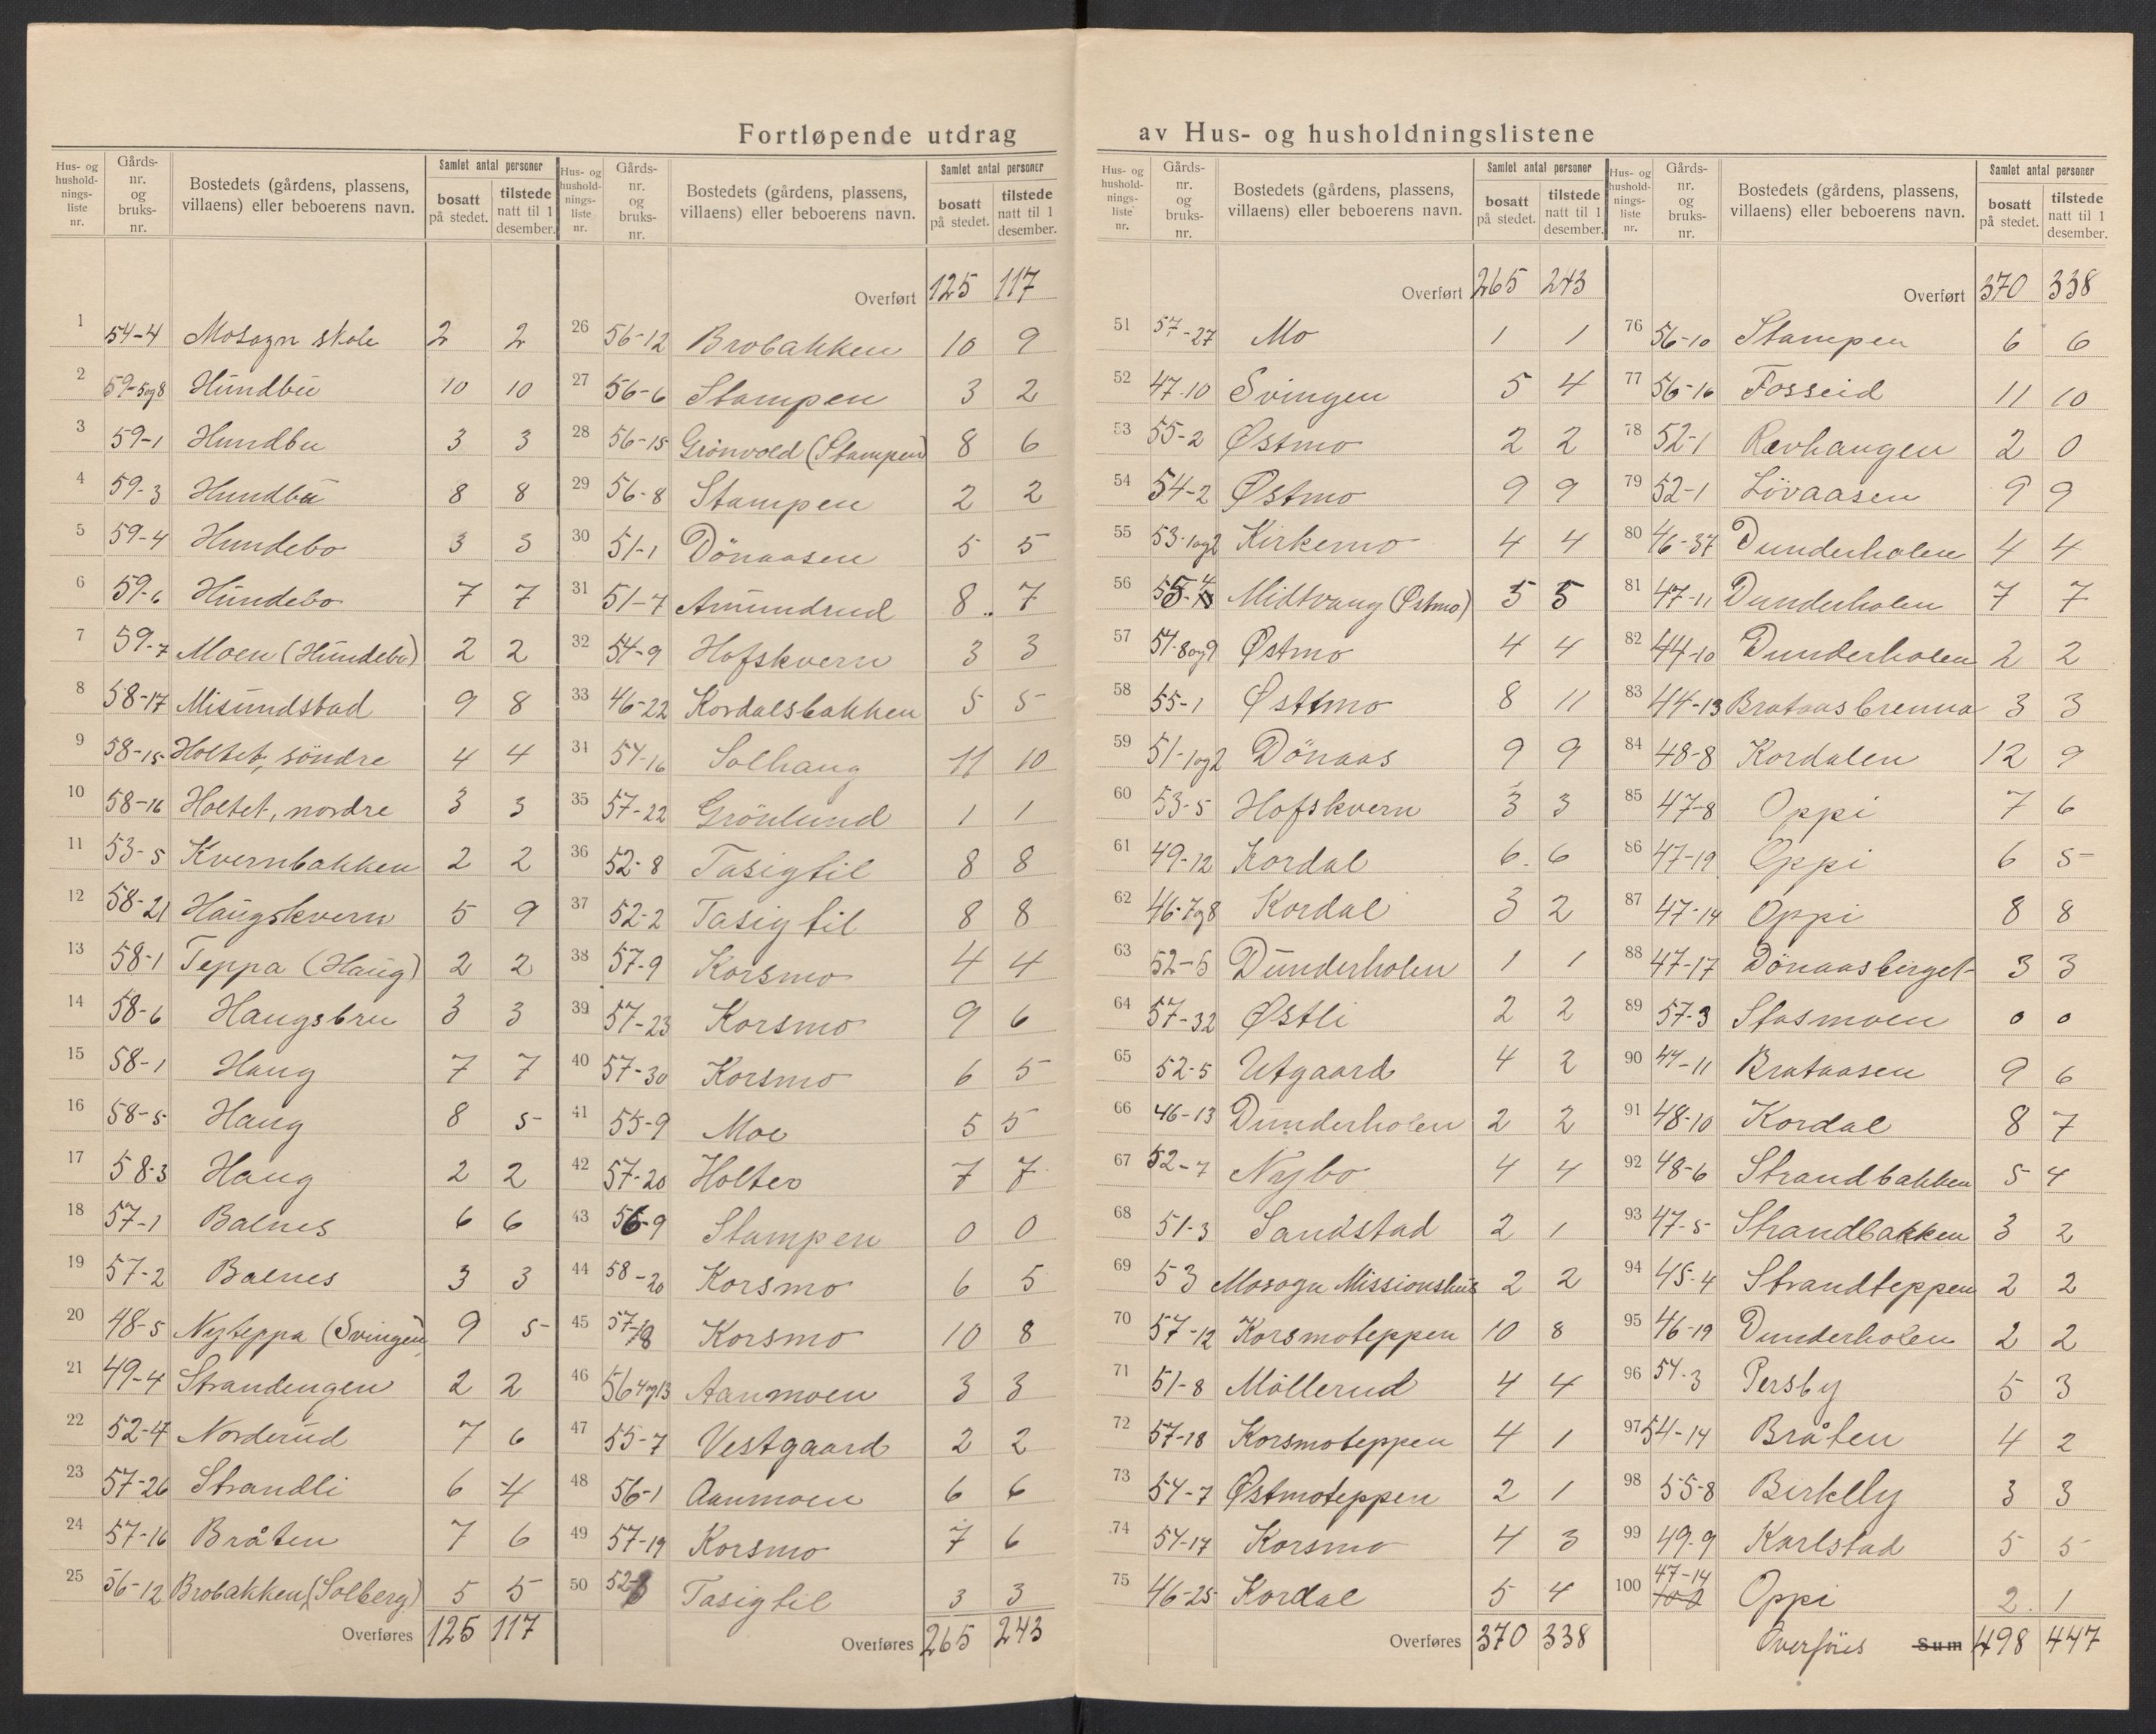 Fortløpende utdrag av Hus- og husholdningslistene
Hus- og husholdnings-liste nr. | Gårds-nr. og bruks-nr. | Bostedets (gårdens, plassens, villaens) eller beboerens navn. | Samlet antal personer | bosatt på stedet. | tilstede natt til 1 desember.
1 54-4 Mosogn skole 2 2
2 59-5og8 Hundbu 10 10
3 59-1 Hundbu 3 3
4 59-3 Hundbu 8 8
5 59-4 Hundebo 3 3
6 59-6 Hundebo 7 7
7 59-7 Moen (Hundebo) 2 2
8 58-17 Misundstad 9 8
9 58-15 Holtet, söndre 4 4
10 58-16 Holtet, nordre 3 3
11 53-5 Kvernbakken 2 2
12 58-21 Haugskvern 5 9
13 58-1 Teppa (Haug) 2 2
14 58-6 Haugsbru 3 3
15 58-1 Haug 7 7
16 58-5 Haug 8 5
17 58-3 Haug 2 2
18 57-1 Balnes 6 6
19 57-2 Balnes 3 3
20 48-5 Nyteppa (Svingen) 9 5
21 49-4 Strandengen 2 2
22 52-4 Norderud 7 6
23 57-26 Strandli 6 4
24 57-16 Bråten 7 6
25 56-12 Brobakken, (Solberg) 5 5
Overføres 125 117
Hus- og husholdnings-liste nr. | Gårds-nr. og bruks-nr. | Bostedets (gårdens, plassens, villaens) eller beboerens navn. | Samlet antal personer | bosatt på stedet. | tilstede natt til 1 desember.
Overført 125 117
26 56-12 Brobakken 10 9
27 56-6 Stampen 3 2
28 56-15 Grönvold (Stampen) 8 6
29 56-8 Stampen 2 2
30 51-1 Dönaasen 5 5
31 51-7 Amundrud 8. 7
32 54-9 Hofskvern 3 3
33 46-22 Kordalsbakken 5 5
34 57-16 Solhaug 11 10
35 57-22 Grönlund 1 1
36 52-8 Tasigtil 8 8
37 52-2 Tasigtil 8 8
38 57-9 Korsmo 4 4
39 57-23 Korsmo 9 6
40 57-30 Korsmo 6 5
41 55-9 Moe 5 5
42 57-20 Holter 7 7
43 56-9 Stampen 0 0
44 58-20 Korsmo 6 5
45 57-18 Korsmo 10 8
46 56 4og13 Aanmoen 3 3
47 55-7 Vestgaard 2 2
48 56-1 Aanmoen 6 6
49 57-19 Korsmo 7 6
50 52- Tasigtil 3 3
Overføres 265 243
Hus- og husholdnings-liste nr. | Gårds-nr. og bruks-nr. | Bostedets (gårdens, plassens, villaens) eller beboerens navn. | Samlet antal personer | bosatt på stedet. | tilstede natt til 1 desember.
Overført 265 243
51 57-27 Mo 1 1
52 47-10 Svingen 5 4
53 55-2 Østmo 2 2
54 54-2 Østmo 9 9
55 53-1og2 Kirkemo 4 4
56 55-4 Midtvang (Østmo) 5 5
57 54-8og9 Østmo 4 4
58 55-1 Østtmo 8 11
59 51-1og2 Dönaas 9 9
60 53-5 Hofskvern 3 3
61 49-12 Kordal 6. 6
62 46-7og8 Kordal 3 2
63 52-5 Dunderholen 1 1
64 57-32 Østli 2 2
65 52-5 Utgaard 4 2
66 46-13 Dunderholen 2 2
67 52-7 Nybo 4 4
68 51-3 Sandstad 2 1
69 53 Mosogn Missionshus 2 2
70 57-12 Korsmoteppen 10 8
71 51-8 Möllerud 4 4
72 57-18 Korsmoteppen 4 1
73 54-7 Østmoteppen 2 1
74 54-17 Korsmo 4 3
75 46-25 Kordal 5 4
Overføres 370 338
Hus- og husholdnings-liste nr. | Gårds-nr. og bruks-nr. | Bostedets (gårdens, plassens, villaens) eller beboerens navn. | Samlet antal personer | bosatt på stedet. | tilstede natt til 1 desember.
Overført 370 338
76 56-10 Stampen 6 6
77 56-16 Fosseid 11 10
78 52-1 Revhaugen 2 0
79 52-1 Lövaasen 9 9
80 46-37 Dunderholen 4 4
81 47-11 Dunderholen 7 7
82 44-10 Dunderholen 2 2
83 44-13 Brataasbrenna 3 3
84 48-8 Kordalen 12 9
85 47-8 Oppi 7 6
86 47-19 Oppi 6 5
87 47-14 Oppi 8 8
88 47-17 Dönaasberget 3 3
89 57-3 Stasmoen 0 0
90 44-11 Brataasen 9 6
91 48-10 Kordal 8 7
92 48-6 Strandbakken 5 4
93 47-5 Strandbakken 3 2
94 45-4 Strandteppen 2 2
95 46-19 Dunderholen 2 2
96 54-3 Persby 5 3
97 54-14 Bråten 4 2
98 55-8 Birkely 3 3
99 49-9 Karlstad 5 5
100 47-14 Oppi 2. 1
Overföres Sum 498 447